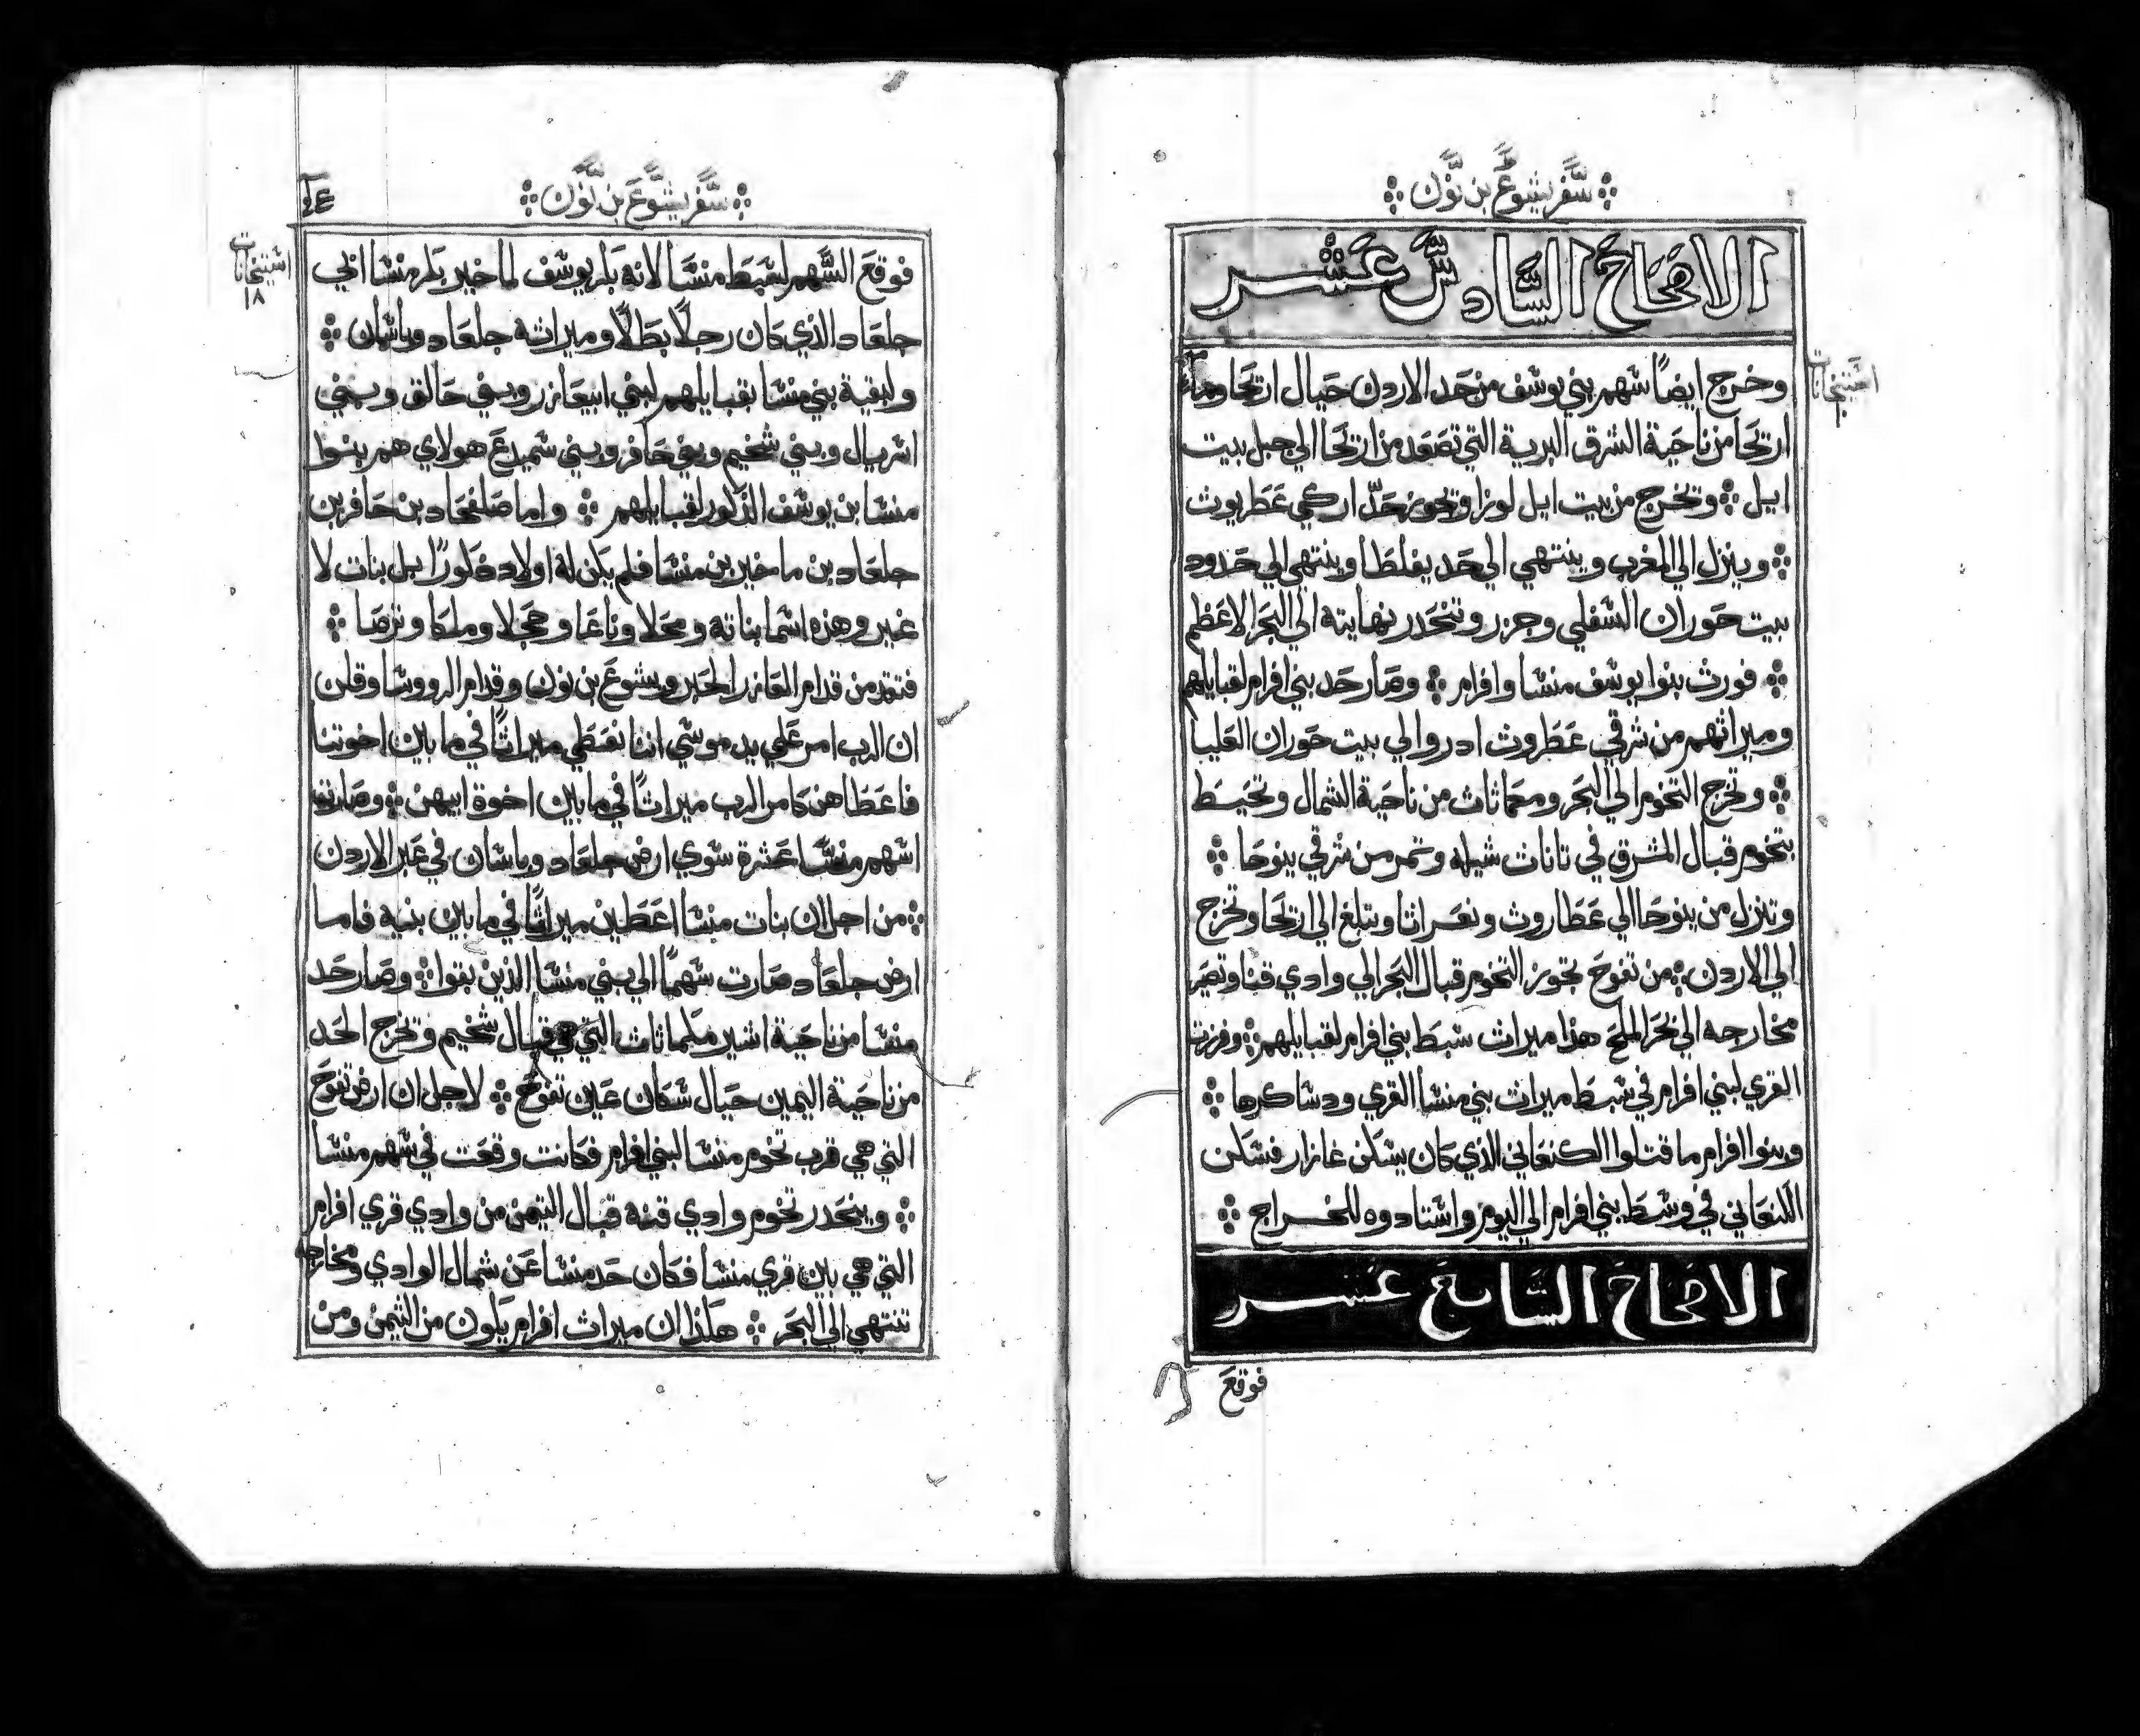 سفر يشوع بن نون
الاصحاح السادس عشر
وخرج ايضاً سهم بني يوسف من حد الاردن حيال اريحا وماء
اريحا من ناحية الشرق البرية التي تصعد من اريحا الي جبل بيت
ايل وتخرج من بيت ايل لوزا وتجوز حد اركي عطاريوت
وينزل الي المغرب وينتهي الي حد يفلطا وينتهي الي حدود
بيت حوران السفلي وجزر وتنحدر نهايته الي البحر الاعظم
فورث بنوا يوسف منسا وافرام وصار حد بني افرام لقبايلهم
وميراثهم من شرقي عطروث ادروا الي بيت حوران العليا
وتخرج التخوم الي البحر ومعماثاث من ناحية الشمال وتحيط
بتخوم قبال المشرق في تانات شيله وتمر من شرقي ينوحا
وتنزل من ينوحا الي عطاروث ونعراثا وتبلغ الي اريحا وتخرج
الي الاردن من تفوح تجوز التخوم قبال البحر الي وادي قنا وتصير
مخارجه الي بحر الملح هذا ميراث سبط بني افرام لقبايلهم وفرزت
القري لبني افرام في سبط ميراث بني منسا القري ودساكرها
وبنوا افرام ما قتلوا الكنعاني الذي كان يسكن غازار فسكن
الكنعاني في وسط بني افرام الي اليوم واستادوه للخراج
الاصحاح السابع عشر
فوقع
سفر يشوع بن نون
فوقع السهم لسبط منسا لانه بكر يوسف لماخير بكر منسا ابي
جلعاد الذي كان رجلاً بطلاً وميراثه جلعاد وباشان
ولبقية بني منسا بقبايلهم لبني ابيعازر وبني حالق وبني
اسريال وبني شخيم وبني حافر وبني شميدع هولاي هم بنوا
منسا بن يوسف الذكور لقبايلهم واما صلفحاد بن حافر بن
جلعاد بن ماخير بن منسا فلم يكن له اولاد ذكوراً بل بنات لا
غير وهذه اسما بناته ومحلا وناعا وحجلا وملكا وترصا
فتقدمن قدام العازر الحبر ويشوع بن نون وقدام الرووسا وقلن
ان الرب امر علي يد موسي اننا نعطي ميراثاً في ما بين اخوتنا
فاعطاهن كامر الرب ميراثاً في ما بين اخوة ابيهن وصارت
اسهم منسا عشرة سوي ارض جلعاد وباسان في عبر الاردن
من اجل ان بنات منسا اعطين ميراثاً في ما بين بنيه فاما
ارض جلعاد صارت سهماً الي بني منسا الذين بقوا وصار حد
منسا من ناحية اشير مكماثات التي هي قبال شخيم وتخرج الحد
من ناحية اليمين حيال سكان عين تفوح لاجل ان ارض تفوح
التي هي قرب تخوم منسا لبني افرام فكانت وقعت في سهم منسا
وينحدر تخوم وادي قنه قبال التيمن من وادي قري افرام
التي هي بين قري منسا فكان حد منسا عن شمال الوادي ومخارجه
تنتهي الي البحر هكذا ان ميراث افرام يكون من التيمن ومن